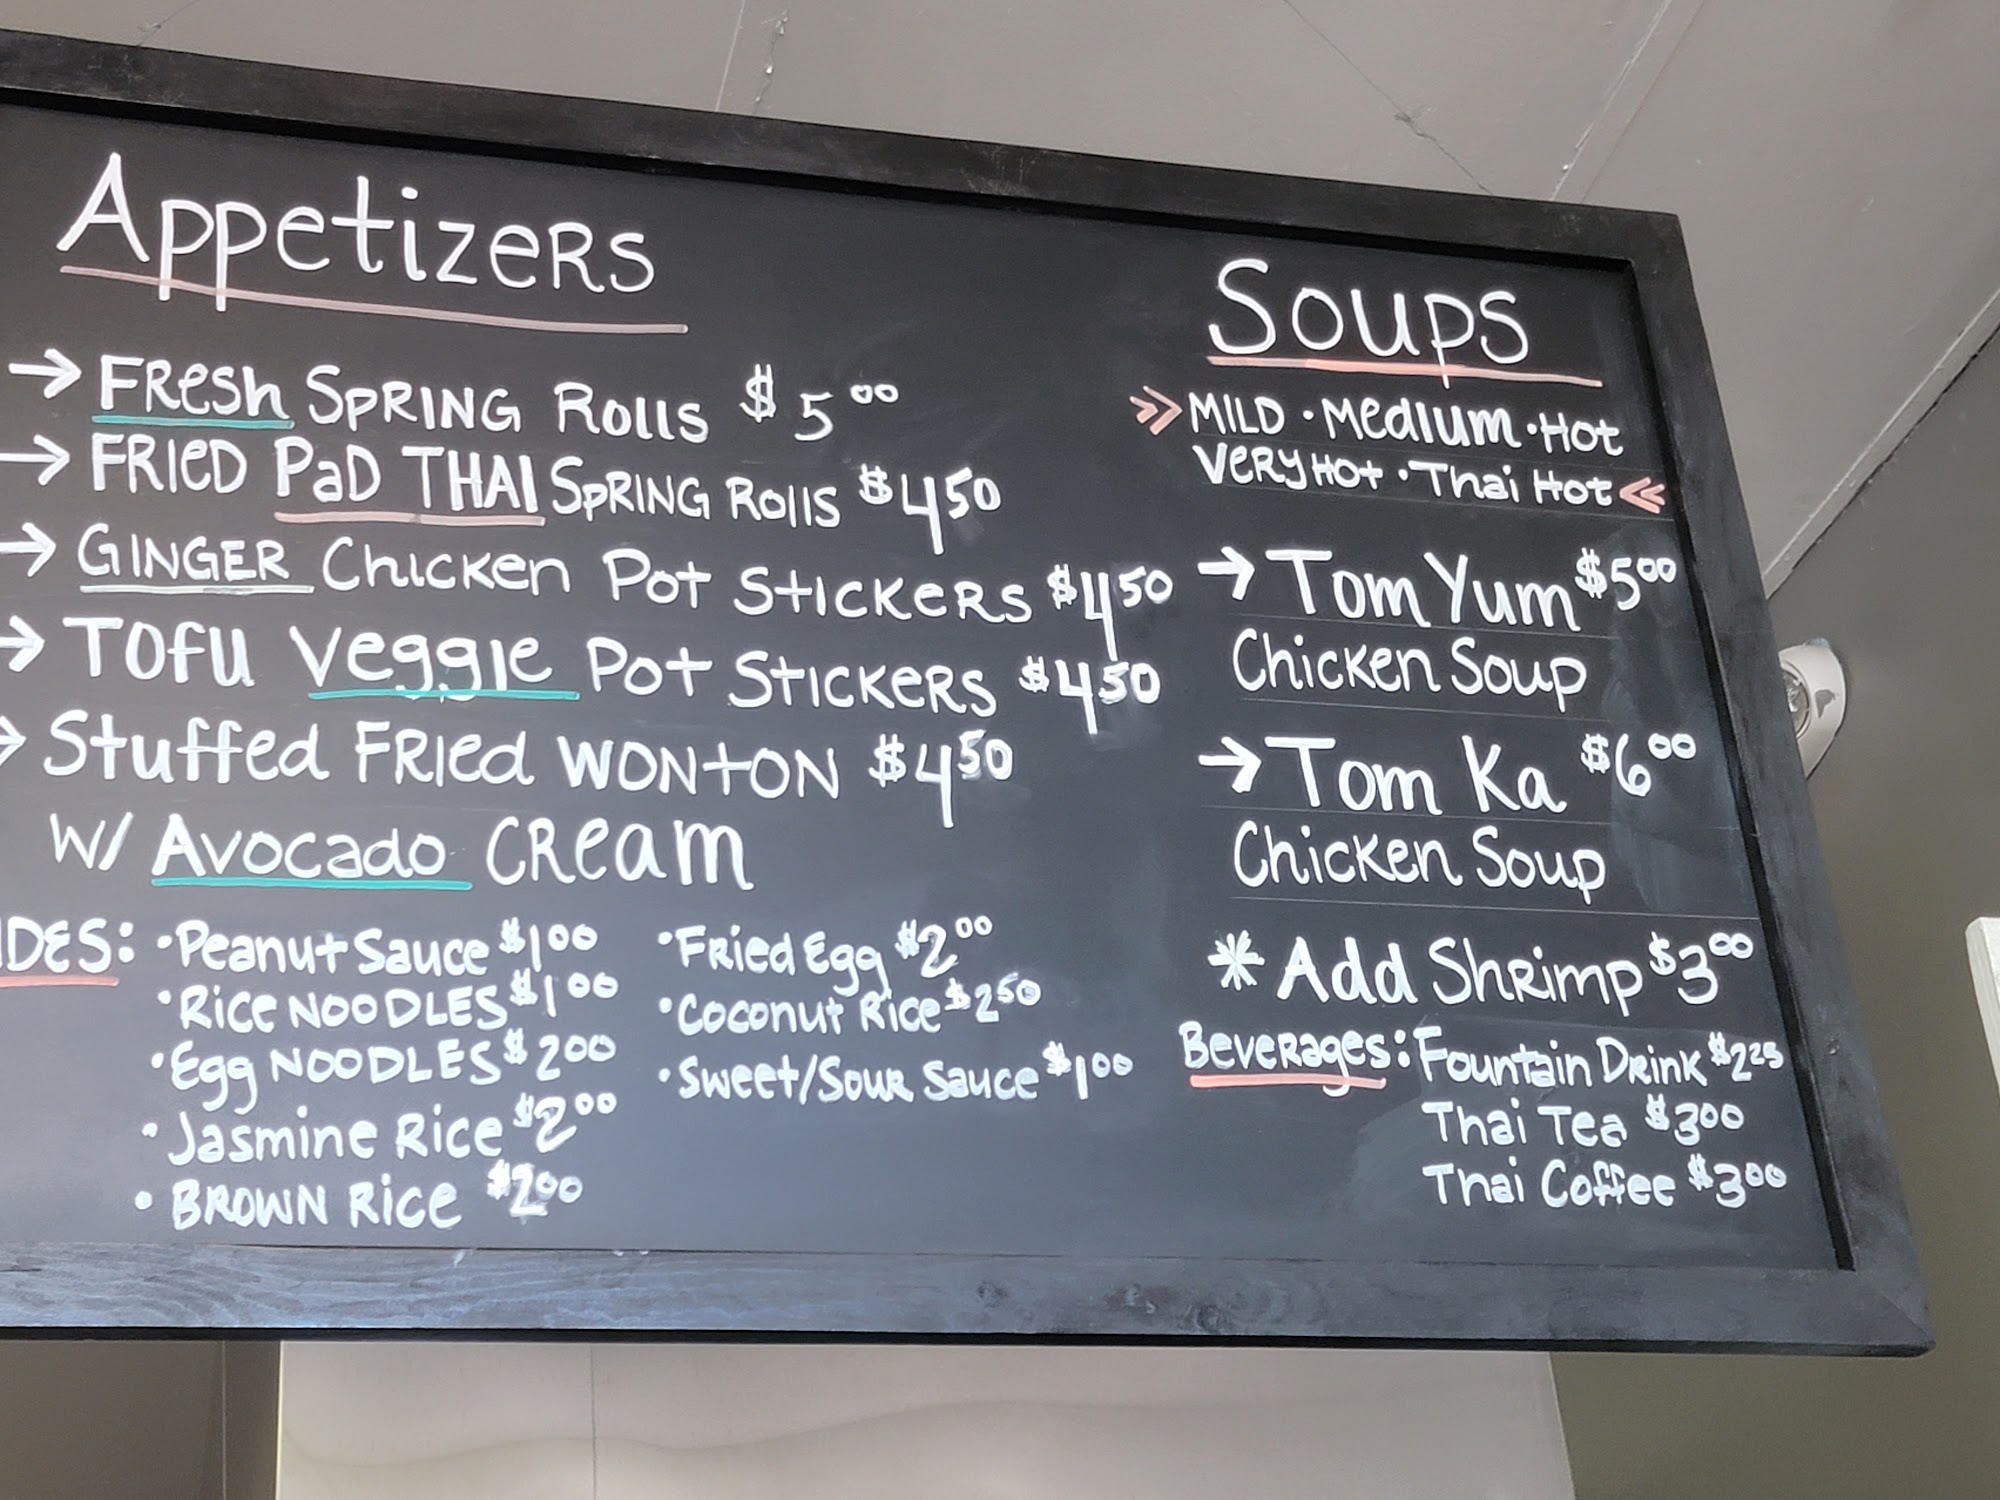 Appetizers
→ Fresh Spring Rolls $5.00
→ Fried Pad Thai Spring Rolls $4.50
→ Ginger Chicken Pot Stickers $4.50
→ Tofu Veggie Pot Stickers $4.50
→ Stuffed Fried Wonton $4.50
w/ Avocado Cream
IDES: • Peanut Sauce $1.00
• Rice Noodles $1.00
• Egg Noodles $2.00
• Jasmine Rice $2.00
• Brown Rice $2.00
• Fried Egg $2.00
• Coconut Rice $2.50
• Sweet/Sour Sauce $1.00
Soups
>> Mild • Medium • Hot
Very Hot • Thai Hot <<
→ Tom Yum $5.00
Chicken Soup
→ Tom Ka $6.00
Chicken Soup
* Add Shrimp $3.00
Beverages: Fountain Drink $2.25
Thai Tea $3.00
Thai Coffee $3.00